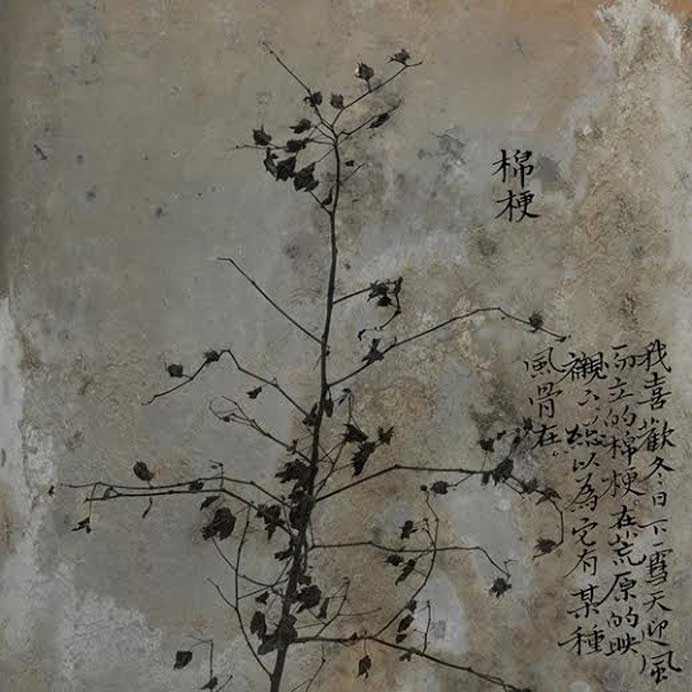 棉
梗
我喜歡冬日下雪天仰風
而立的棉梗。在荒原的映
襯下,總以為它有某種
風骨在。